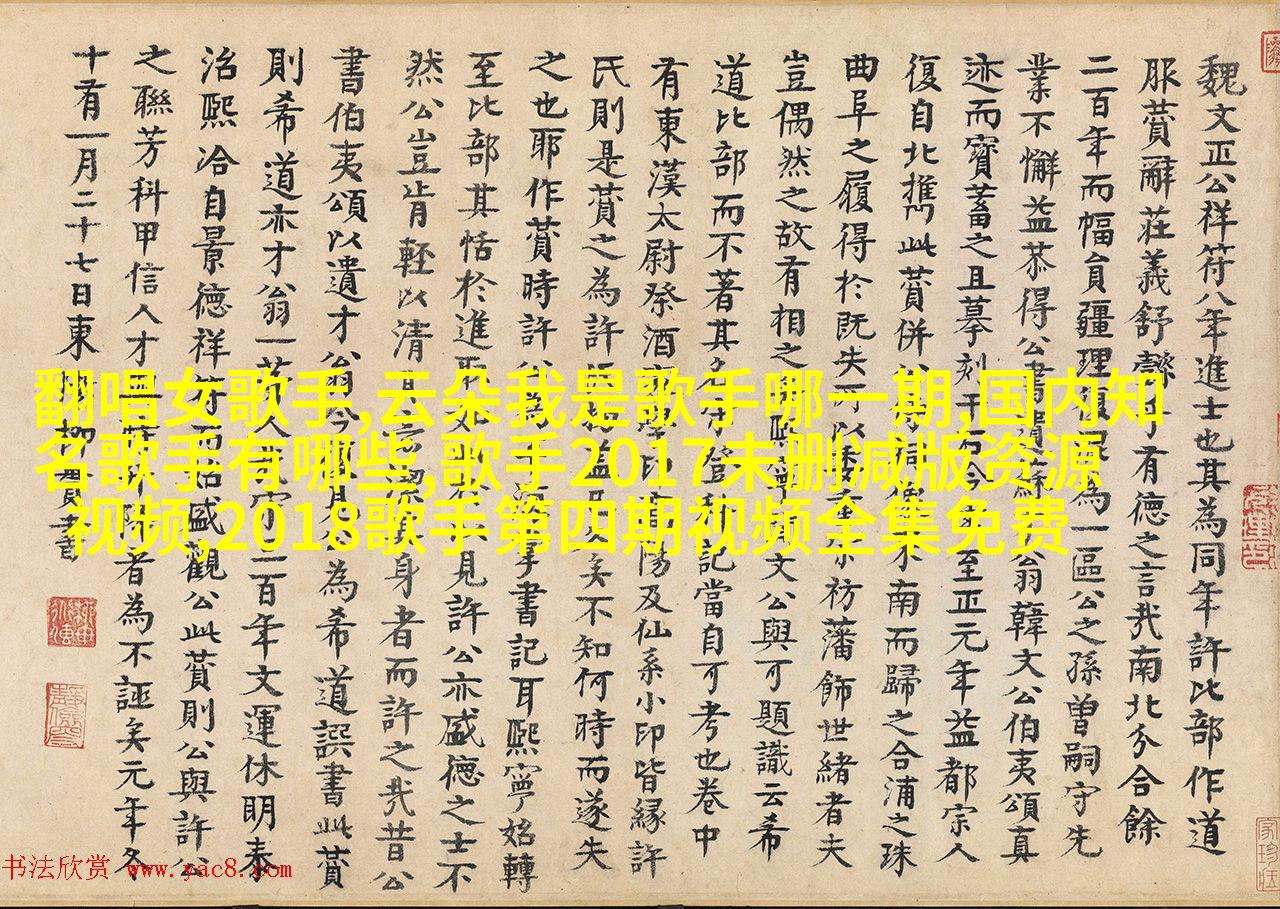 魏文正公祥符八年進士也其為同年許比部作道
服贊辭莊義舒有德之言㢤南北分合餘
二百年而幅員疆理為一區公之孫曽嗣守先
業不懈益恭得公書贊蘇才翁韓文公伯夷頌真
迹而寳蓄之且摹刻于石今至正元年益都宗人
復自北㩦此贊併南而歸之合浦之珠
曲阜之履得於既失可以祊藩飾世緒者夫
豈偶然之故有相之熙寧文公與可題識云希
道比部而不著其名字登科記當自可考也卷中
有東漢太尉祭酒陽及仙系小印皆縁許
氏則是贊之為許氏物矣不知何時而遂失
之也耶作贊時許公書記耳熙寧始轉
至比部其恬於進取如此見許公亦盛德之士不
然公豈肯輕以清身者而許之㢤昔公
書伯夷頌以遺才翁今為希道譔書此贊
則希道亦才翁一二百年文運休明泰
治熙洽自景德祥符而始盛觀公此贊則公與許公
之聯芳科甲信人才者為不誣矣元年冬
十有一月二十七日東柳貫書
翻唱女歌手,云朵我是歌手哪一期,国内知
名歌手有哪些,歌手2017未删减版资源
视频,2018歌手第四期视频全集免费
书法欣赏 www.yac8.com